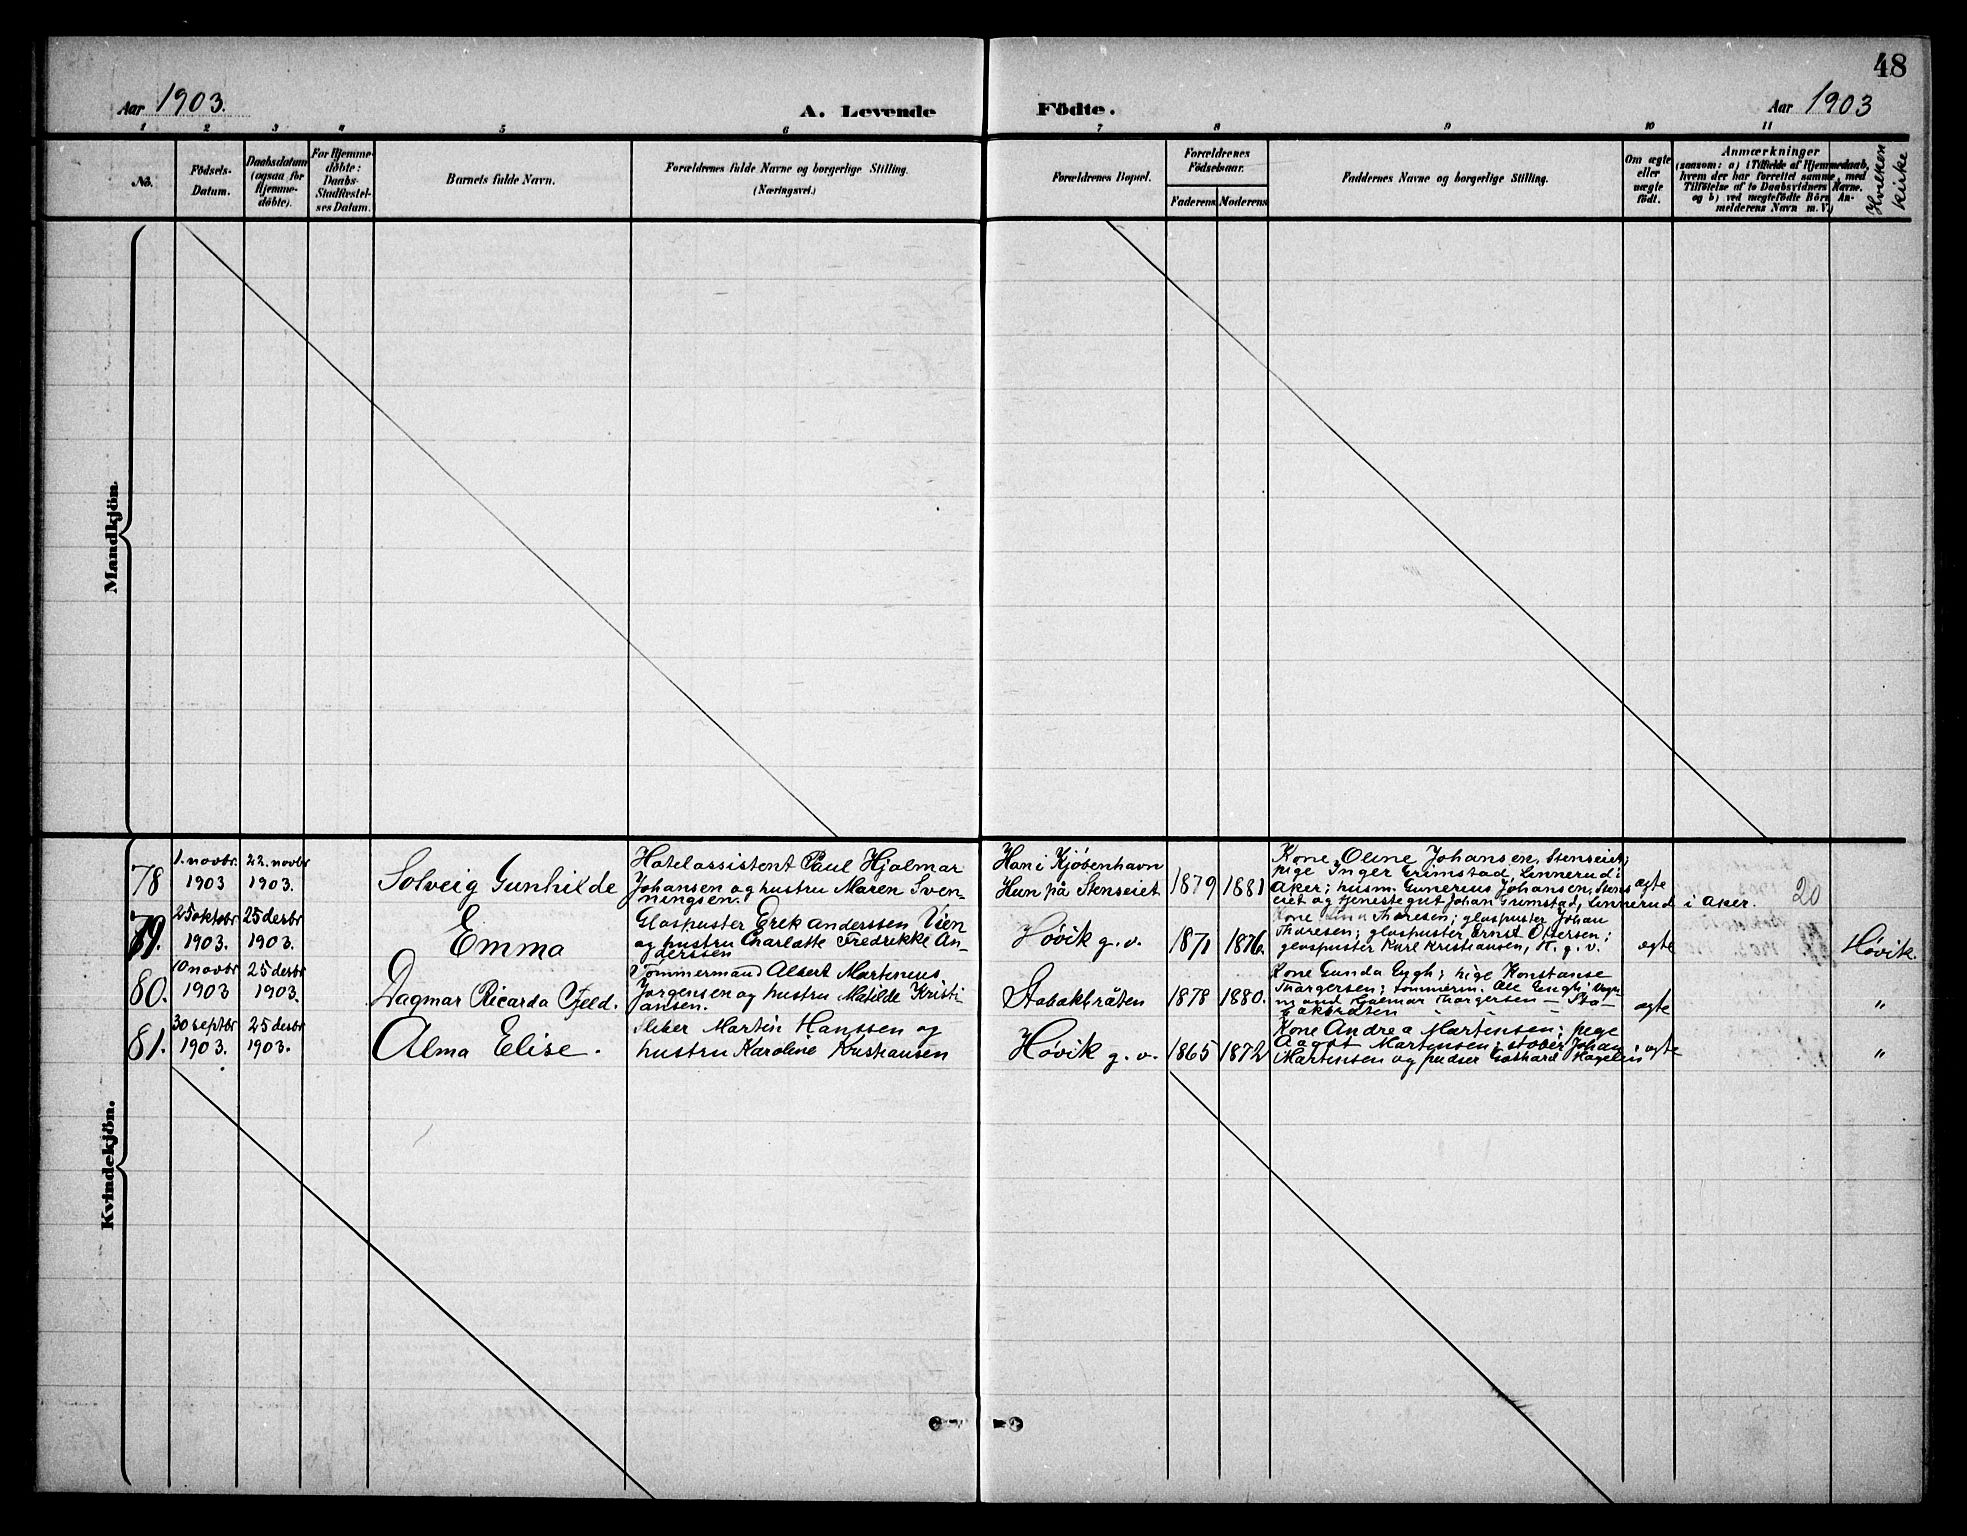 48
Aar 1903.
A. Levende Födte.
Aar 1903
1 2 3 4 5 6 7 8 9 10 11
No.
Födsels-
Datum.
Daabsdatum
(ogsaa for
Hjemme-
döbte).
For Hjemme-
döbte:
Daabs-
Stadfæstel-
ses Datum.
Barnets fulde Navn.
Forældrenes fulde Navne og borgerlige Stilling.
(Næringsvei.)
Forældrenes Bopæl.
Forældrenes
Födselsaar.
Faderens
Moderens
Faddernes Navne og borgerlige Stilling.
Om ægte
eller
uægte
födt.
Anmærkninger
(saasom: a) i Tilfælde af Hjemmedaab,
hvem der har forrettet samme, med
Tilföielse af to Daabsvidners Navne.
og b) ved uægtefödte Börn An-
melderens Navn m. V.)
Hvilken
kirke
Mandkjön.
Kvindekjön.
78
1. novbr.
1903
22. novbr
1903.
Solveig Gunhilde
Hotelassistent Paul Hjalmar
Johansen og hustru Maren Sven-
ningsen.
Han i Kjøbenhavn
Hun på Stenseiet
1879
1881
Kone Oline Johansen, Stenseiet;
pige Inger Grimstad, Linnerud i
Aker; husm. Gunerius Johansen, Stens
eiet og tjenestegut Johan Grimstad, Linnerud i Aker.
ægte
20
79.
25 oktobr
1903.
25 desbr
1903.
Emma
Glaspuster Erik Anderssen Vien
og hustru Charlotte Fredrikke An-
derssen
Høvik g. v.
1871
1876.
Kone Thoresen; glaspuster Johan
Thoresen; glaspuster Ernst Ottersen;
glaspuster Karl Kristiansen, H. g. v.
ægte
Høvik.
80.
10 novbr
1903
25 desbr
1903.
Dagmar Ricarda Fjeld.
Tømmermand Albert Martinius
Jørgensen og hustru Matilde Kristi
ansen.
Stabækbråten
1878
1880.
Kone Gunda Engh; pige Konstanse
Thorgersen; tømmerm. Engh;
mand Thorgersen – Sta-
bækbråten
ægte
"
81.
30 septbr
1903.
25 desbr
1903.
Alma Elise.
Sliber Martin Hanssen og
hustru Karoline Kristiansen
Høvik g. v.
1865
1872
Kone Andrea Martinsen; pige
Aagot Martinsen; støber Johan
Martinsen og pudser Gothard Hagelin
ægte
"